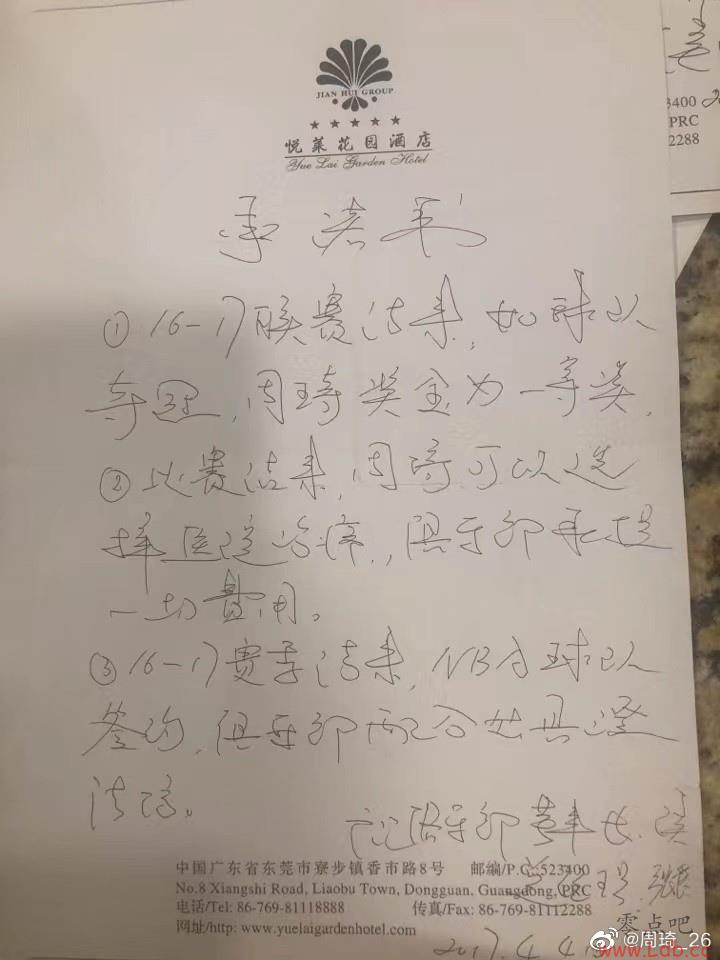 JIAN HUI GROUP
悦莱花园酒店
Yue Lai Garden Hotel
承诺书
① 16-17联赛结束,如球队
夺冠,周琦奖金为一等奖,
② 比赛结束,周琦可以选
择医疗治疗,俱乐部承担
一切费用。
③ 16-17赛季结束,NBA球队
签约,俱乐部配合出具澄
清信。
俱乐部
中国广东省东莞市寮步镇香市路8号 邮编/P.C.:523400
No.8 Xiangshi Road, Liaobu Town, Dongguan, Guangdong, PRC
电话/Tel: 86-769-81118888 传真/Fax: 86-769-81112288
网址/http: www.yuelaigardenhotel.com
2017.4.4
3400
PRC
2288
零点吧
@周琦_26
www.Ldb.cc